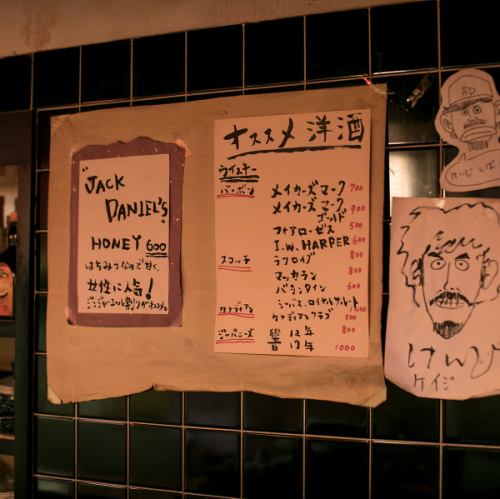 "JACK
DANIEL'S
HONEY 600
はちみつなので甘く、
女性に人気!
ジンジャーエール割りがオススメ。
オススメ 洋酒
ウイスキー
バーボン
メイカーズマーク 700
メイカーズマーク
ゴールド 900
フォアローゼス 500
I.W. HARPER 600
スコッチ
ラフロイグ 800
マッカラン 800
バランタイン 600
シーバス.ロイヤルサルート
カナディアン
カナディアンクラブ 500
ジャパニーズ
響 12年 800
響 17年 1000
SD
けいじ しば
けんぴ
ケイジ